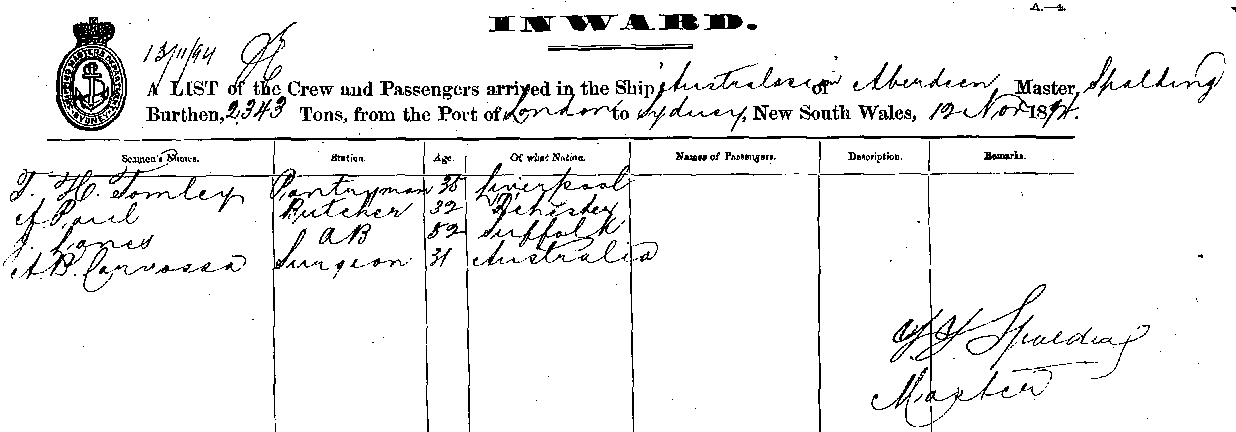 A.—4.
INWARD.
13/11/94
A LIST of the Crew and Passengers arrived in the Ship Australasian of Aberdeen Master, Spalding
Burthen, 2343 Tons, from the Port of London to Sydney, New South Wales, 12 Nov 1894.
Seamen's Names. Station. Age. Of what Nation. Names of Passengers. Description. Remarks.
T. H. Tomley Pantryman 35 Liverpool
A Paul Butcher 32
J. Jones AB 52 Suffolk
A. B. Carvossa Surgeon 31 Australia
Spalding
Master